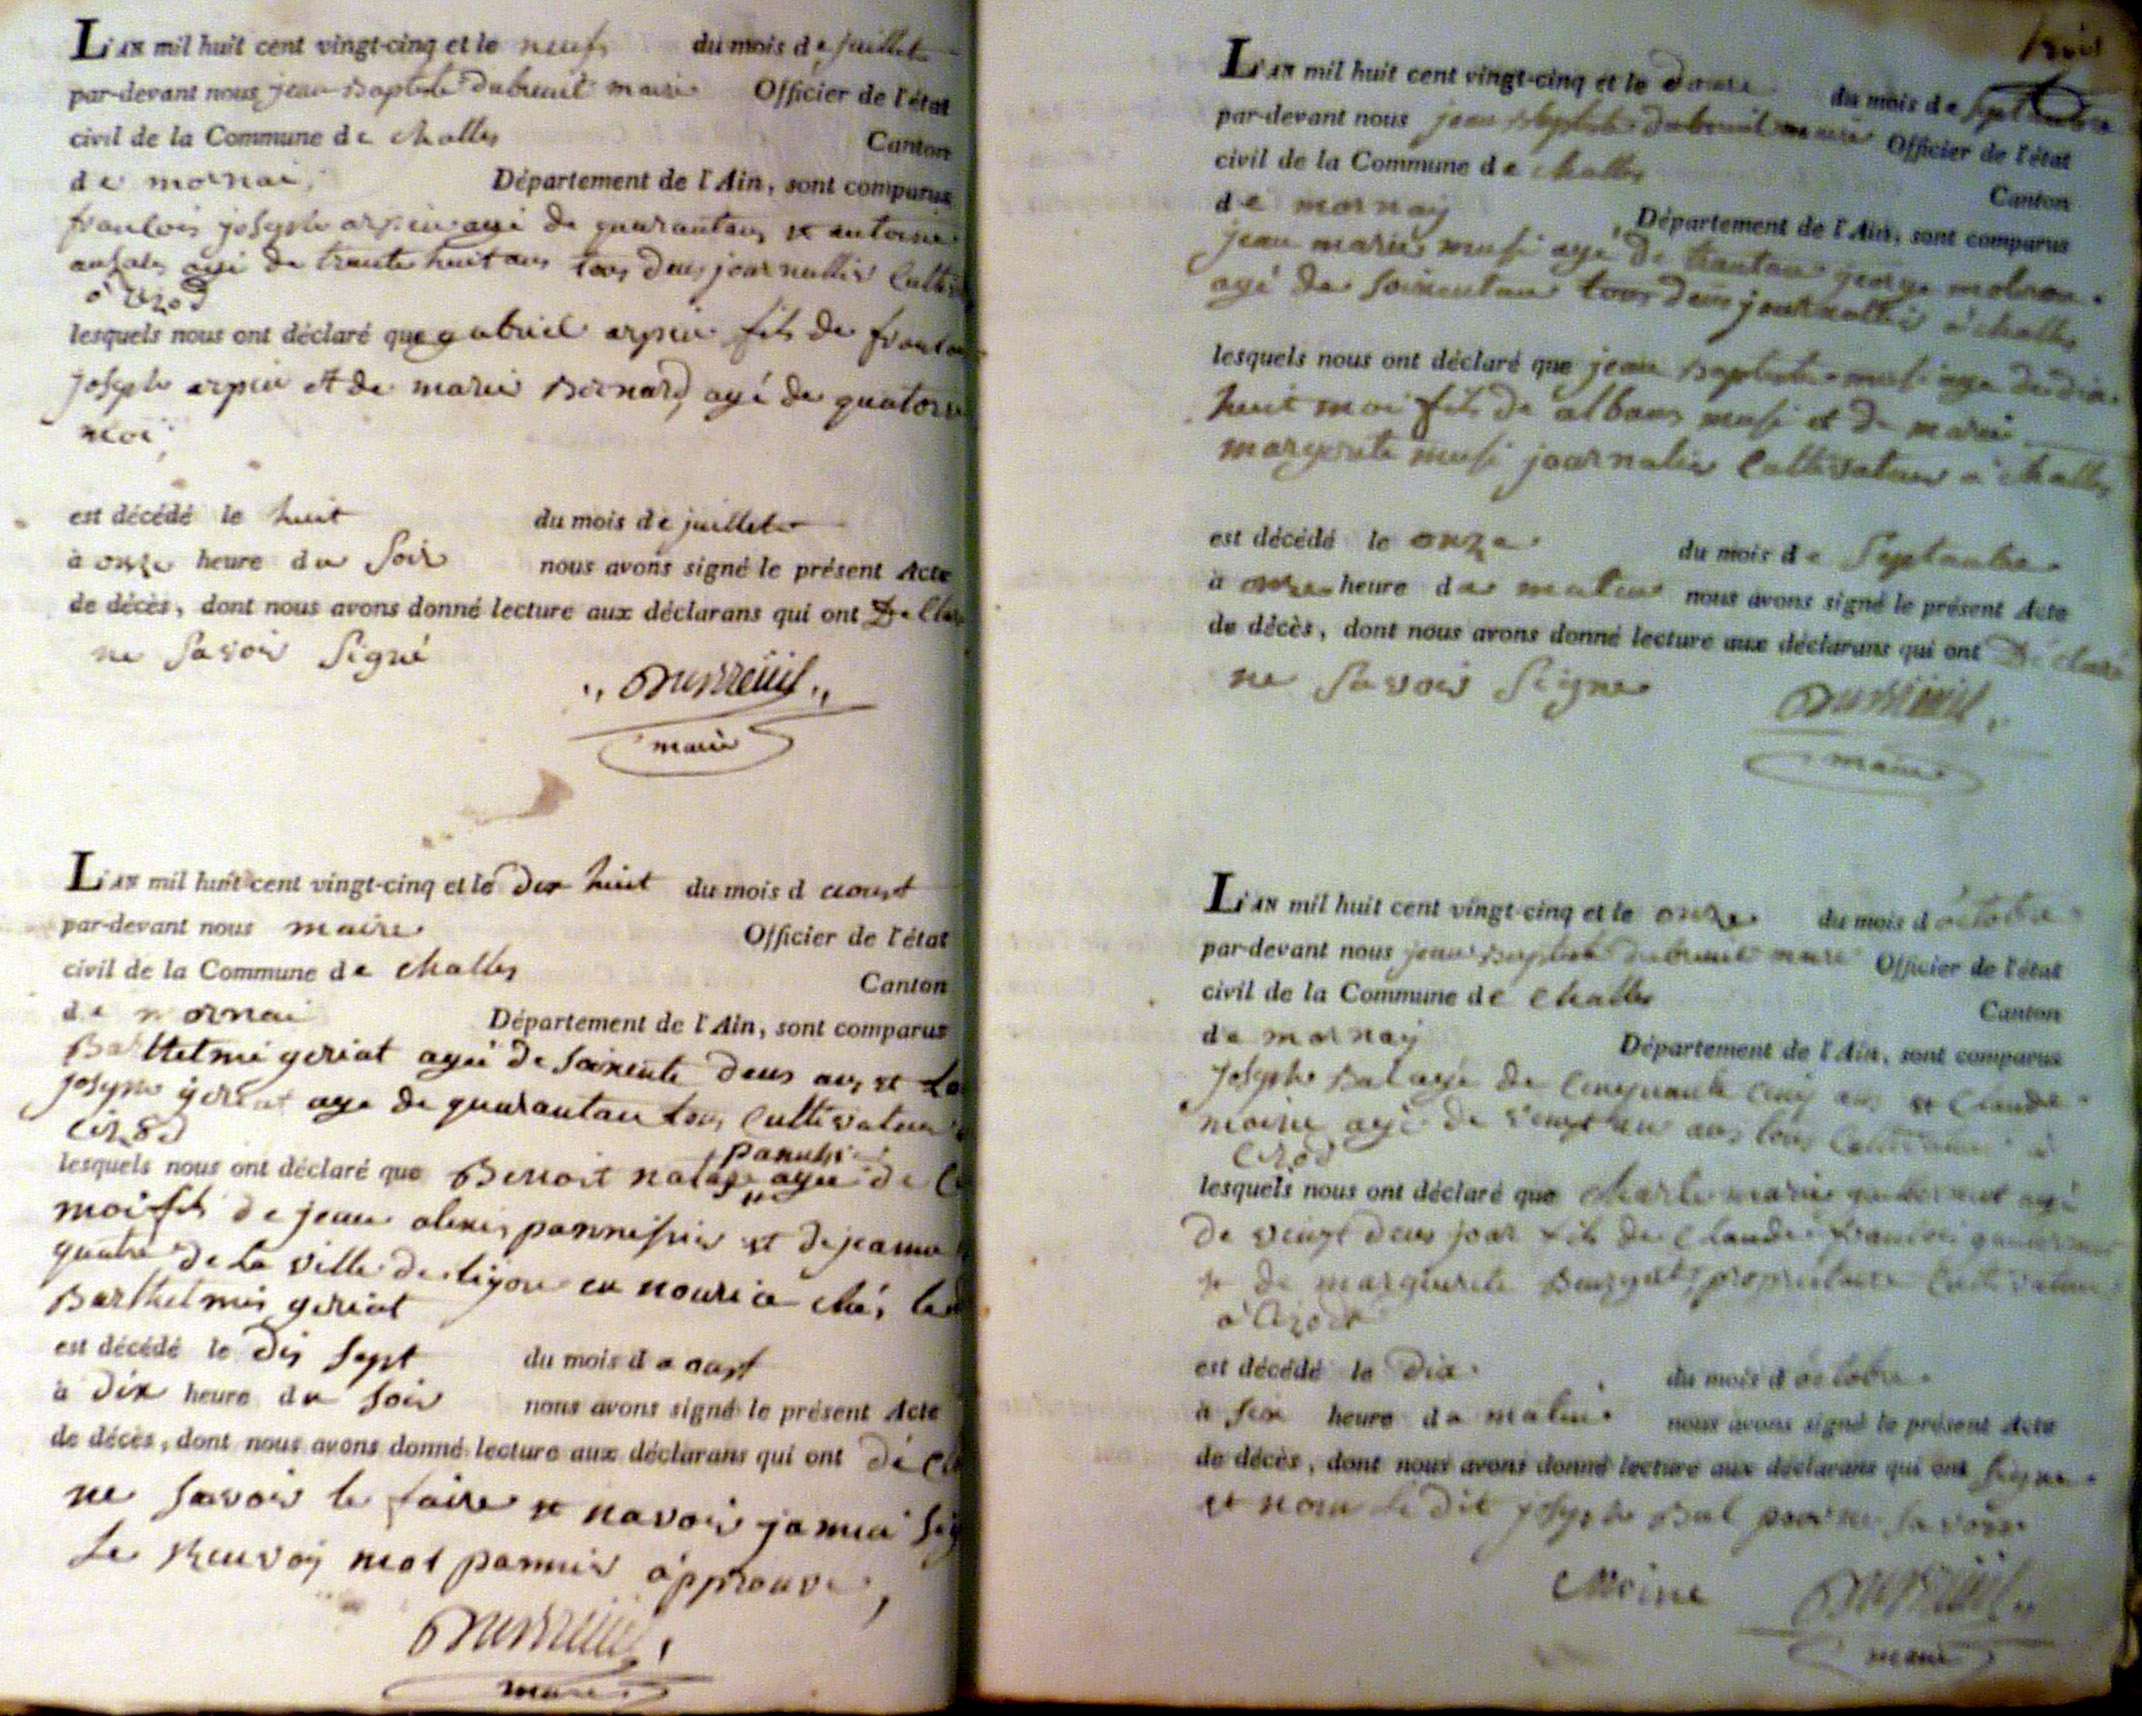 L'AN mil huit cent vingt-cinq et le neuf du mois de juillet
par-devant nous jean Baptiste Dubreuil maire Officier de l'état
civil de la Commune de challes Canton
de mornai, Département de l'Ain, sont comparus
francois joseph arpin agé de quarantans et antoine
agé de trante huit ans tous deus journallier
à Cizod
lesquels nous ont déclaré que gabriel arpin fils de
joseph arpin et de marie Bernard, agé de quatorze
moi,
est décédé le huit du mois de juillet
à onze heure du soir nous avons signé le présent Acte
de décès, dont nous avons donné lecture aux déclarans qui ont
ne savoir signé
Dubreuil
maire
L'AN mil huit cent vingt-cinq et le dix huit du mois d aoust
par-devant nous maire Officier de l'état
civil de la Commune de challes Canton
de mornai Département de l'Ain, sont comparus
Barthelmi geriat agé de soixente deus ans et
joseph geriat age de quarantan tous Cultivateur
Cizod
lesquels nous ont déclaré que Benoit agé de
moi fils de jean alexis pannissier et de jeanne
de la ville de liyon en nourice ché le
Barthelmis geriat
est décédé le dis sept du mois d aoust
à dix heure du soir nous avons signé le présent Acte
de décès, dont nous avons donné lecture aux déclarans qui ont
ne savoir le faire et navoir jamai
Le Renvoy mot approuvé,
Dubreuil
maire
trois
L'AN mil huit cent vingt-cinq et le douze du mois de septambre
par-devant nous jean Baptiste Dubreuil maire Officier de l'état
civil de la Commune de challes Canton
de mornay Département de l'Ain, sont comparus
jean marie musi agé de trantan george
agé de soixentan tous deus journallier à challes
lesquels nous ont déclaré que jean Baptiste musi age de dix
huit moi fils de alban musi et de marie
margerite musi journalier Cultivateur à challes
est décédé le onze du mois de Septambre
à onze heure du matin nous avons signé le présent Acte
de décès, dont nous avons donné lecture aux déclarans qui ont Déclaré
ne savoir signer
Dubreuil
maire
L'AN mil huit cent vingt-cinq et le onze du mois d octobre
par-devant nous jean Baptiste Dubreuil maire Officier de l'état
civil de la Commune de challes Canton
de mornay Département de l'Ain, sont comparus
joseph Bal agé de Cinquante Cinq ans et Claude
moine agé de vingt un ans tous Cultivateur à
Cizod
lesquels nous ont déclaré que Charle marie agé
de vingt deus jour fils de Claude francois
et de margiurite proprietaire Cultivateur
à Cizod
est décédé le Dix du mois d octobre
à six heure du matin nous avons signé le présent Acte
de décès, dont nous avons donné lecture aux déclarans qui ont signer
et non le dit joseph Bal pour ne savoir
Moine Dubreuil
maire